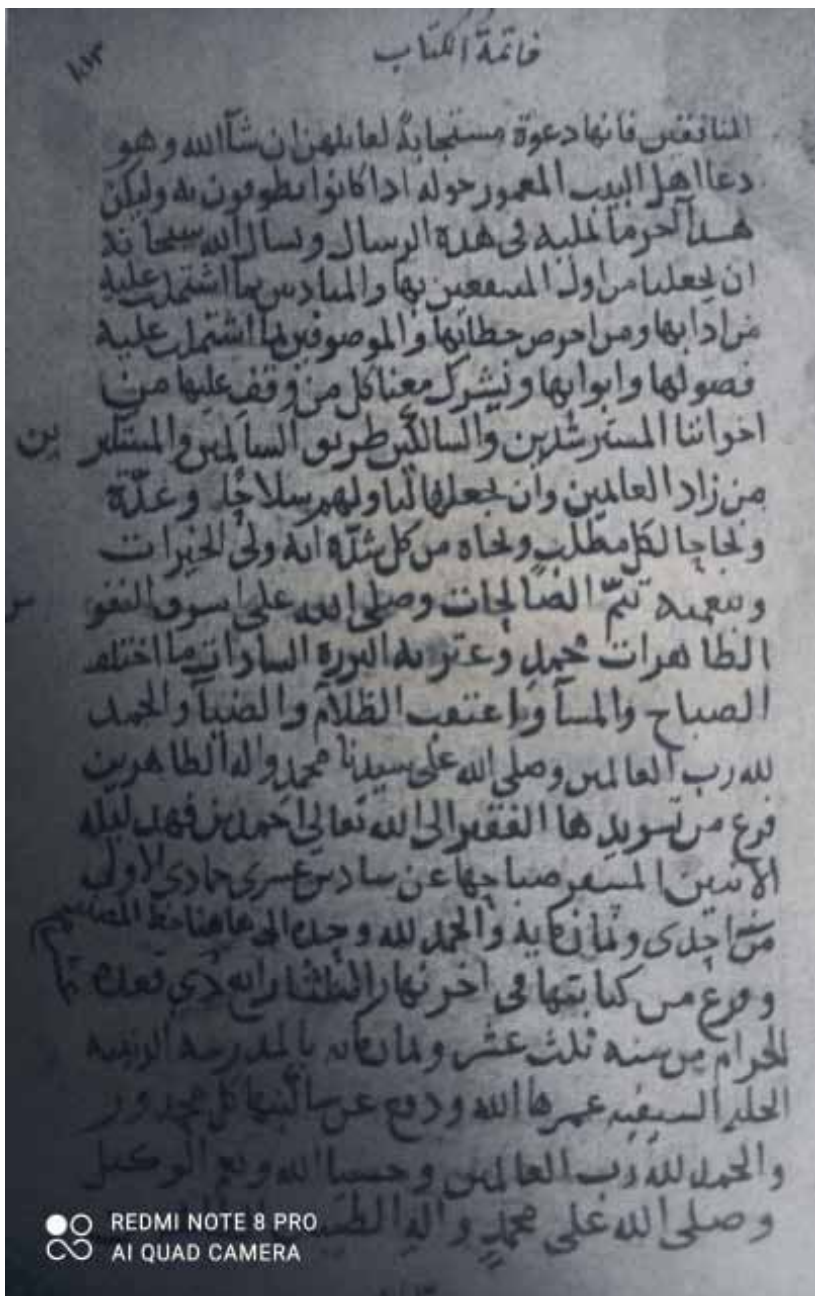 خاتمة الكتاب
١٨٣
المنافقين فانها دعوة مستجابة لقائلهن ان شآ الله وهو
دعا اهل البيت المعمور حوله اذا كانوا يطوفون به وليكن
هذا آخر ما نمليه فى هذه الرسال ونسال الله سبحانه
ان يجعلنا من اول المنتفعين بها والمتادبين بما اشتملت عليه
من ادابها ومن اخوص خطابها والموصوفين بما اشتملت عليه
فصولها وابوابها ويشرك معنا كل من وقف عليها من
اخواننا المسترشدين والسالكين طريق السالمين والمستكثرين
من زاد العالمين وان يجعلها لنا ولهم سلاحا وعدّة
ونجاحا لكل مطلب ونجاه من كل شدّة انه ولىّ الخيرات
وبنعمته تتمّ الصالحات وصلى الله على اشرف النفوس
الطاهرات محمد وعترته البررة السادات ما اختلف
الصباح والمسآ واعتقب الظلام والضيآ والحمد
لله رب العالمين وصلى الله على سيدنا محمد واله الطاهرين
فرغ من تسويدها الفقير الى الله تعالى احمد بن فهد ليله
الاثنين المسفر صباحها عن سادس عشرى جمادى الاولى
من احدى وثمان مايه والحمد لله وحده الى هاهنا خط المصنف
وفرغ من كتابتها فى اخر نهار الثلثا رابع ذى قعده
الحرام من سنه ثلث عشر وثمان مايه بالمدرسه الزينيه
الحليه السيفيه عمرها الله ودفع عن ساكنيها كل محذور
والحمد لله رب العالمين وحسبنا الله ونعم الوكيل
وصلى الله على محمد واله
REDMI NOTE 8 PRO
AI QUAD CAMERA